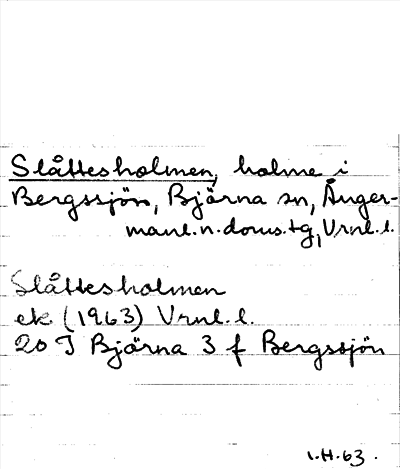 Slåttesholmen, holme i
Bergssjön, Björna sn, Ånger-
manl.n.doms.tg, Vrnl.l.
Slåttesholmen
ek (1963) Vrnl.l.
20 J Björna 3 f Bergssjön
I.H.63.